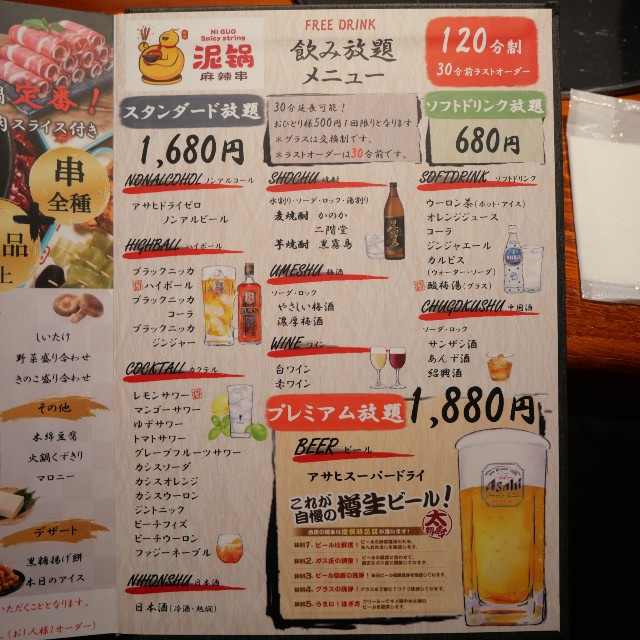 定番！
肉スライス付き
串
全種
品
上
しいたけ
野菜盛り合わせ
きのこ盛り合わせ
その他
木綿豆腐
火鍋くずきり
マロニー
デザート
黒糖揚げ餅
本日のアイス
いただくこととなります。
(お1人様1オーダー)
NI GUO
Spicy string
泥锅
麻辣串
FREE DRINK
飲み放題
メニュー
120分制
30分前ラストオーダー
スタンダード放題
1,680円
30分延長可能！
おひとり様500円1回限りとなります
＊グラスは交換制です。
＊ラストオーダーは30分前です。
ソフトドリンク放題
680円
NONALCOHOL ノンアルコール
アサヒドライゼロ
ノンアルビール
HIGHBALL ハイボール
ブラックニッカ
ハイボール
ブラックニッカ
コーラ
ブラックニッカ
ジンジャー
COCKTALL カクテル
レモンサワー
マンゴーサワー
ゆずサワー
トマトサワー
グレープフルーツサワー
カシスソーダ
カシスオレンジ
カシスウーロン
ジントニック
ピーチフィズ
ピーチウーロン
ファジーネーブル
NIHONSHU 日本酒
日本酒(冷酒・熱燗)
SHOCHU 焼酎
水割り・ソーダ・ロック・湯割り
麦焼酎 かのか
二階堂
芋焼酎 黒霧島
UMESHU 梅酒
ソーダ・ロック
やさしい梅酒
濃厚梅酒
WINE ワイン
白ワイン
赤ワイン
SOFTDRINK ソフトドリンク
ウーロン茶(ホット・アイス)
オレンジジュース
コーラ
ジンジャエール
カルピス
(ウォーター・ソーダ)
酸梅湯(グラス)
CHUGOKUSHU 中国酒
ソーダ・ロック
サンザシ酒
あんず酒
紹興酒
プレミアム放題
1,880円
BEER ビール
アサヒスーパードライ
これが
自慢の
樽生ビール！
Asahi